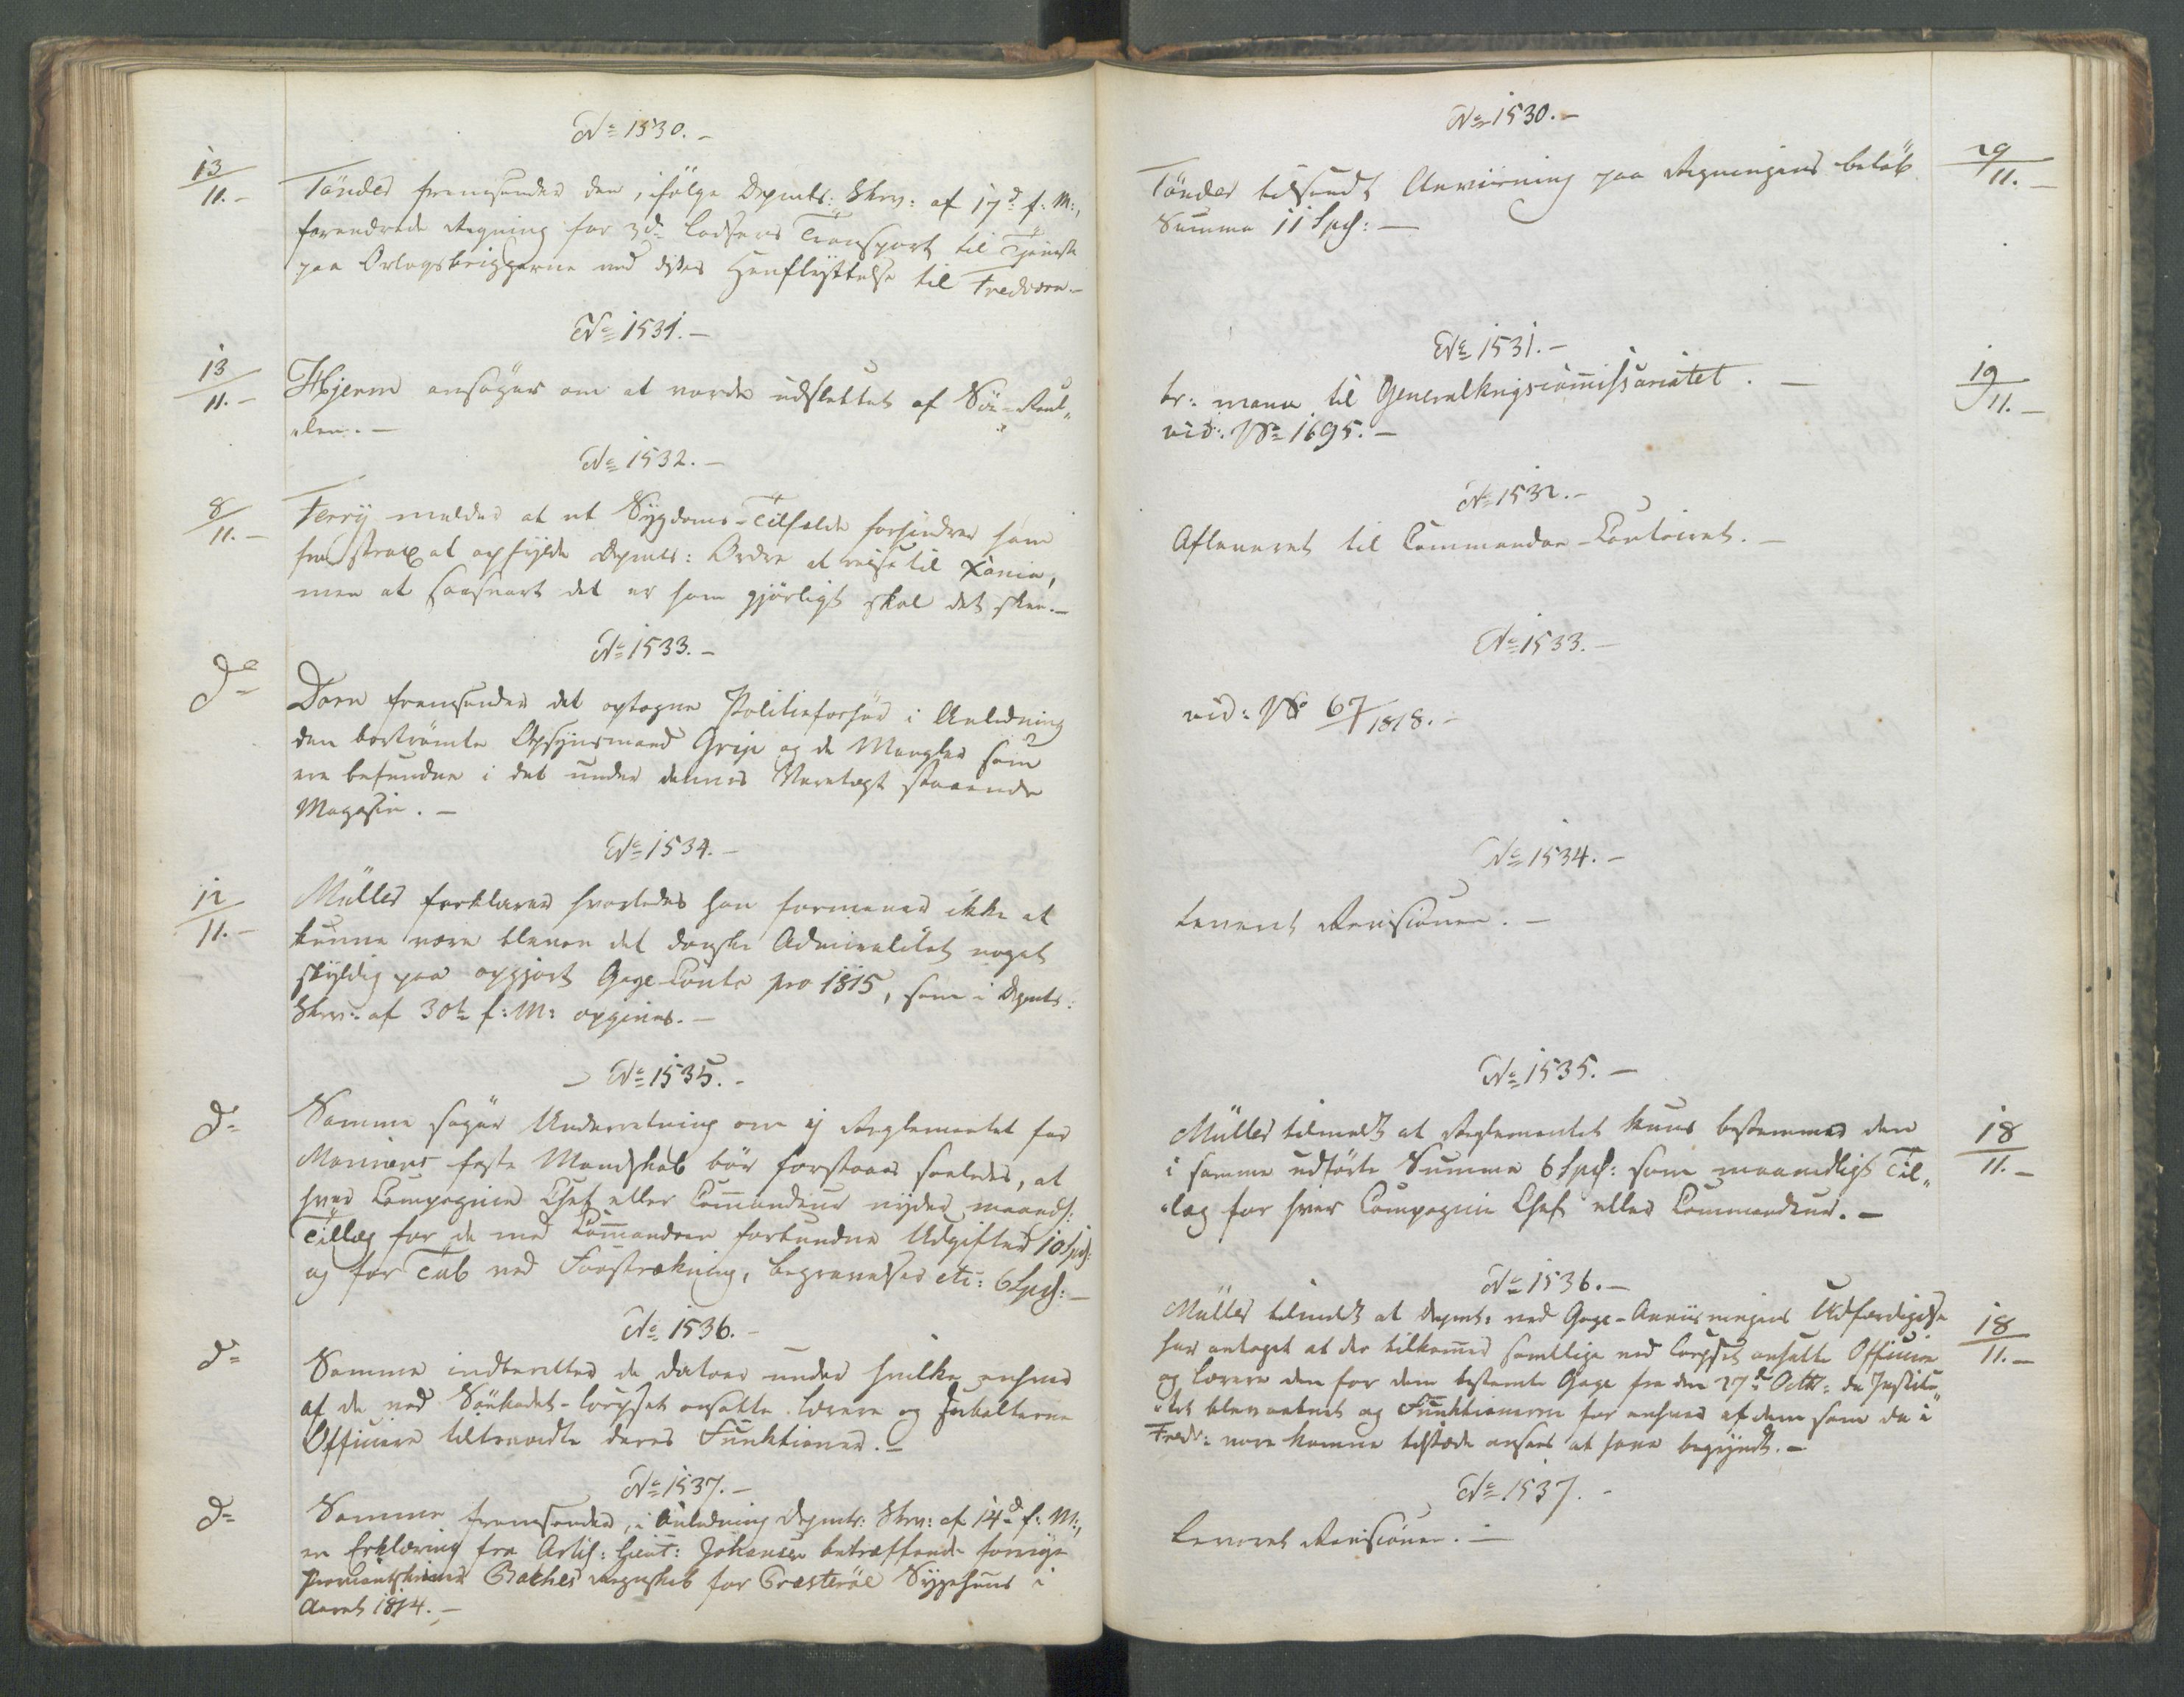 No 1530.-
13/11.-
Tönder fremsender den, ifölge Depmts: Skrv: af 17d f: M:,
forandrede Regning for 3de Lodsers Transport til Tjeneste
paa Orlogsbriggerne ved disses Henflyttelse til Fredværn.-
No 1531.-
13/11.-
Hjerm ansöger om at vorde udslettet af Söe-Rul-
len.-
No 1532.-
8/11.-
Ferry melder at et Sygdoms-Tilfælde forhindrer ham
fra strax at opfylde Depmts: Ordre at reise til Xania,
men at saasnart det er ham gjörligt skal det skee.-
No 1533.-
do
Dorn fremsender det optagne Politieforhör i Anledning
den bortrömte Opsynsmand Grip og de Mangler som
ere befundne i det under dennes Varetægt staaende
Magasin.-
No 1534.-
12/11.-
Müller forklarer hvorledes han formener ikke at
kunne være bleven det danske Admiralitet noget
skyldig paa opgjort Gage-Conto pro 1815, som i Depmts:
Skrv: af 30te f: M: opgives.-
No 1535.-
do
Samme söger Underretning om ej Reglementet for
Marinens faste Mandskab bör forstaaes saaledes, at
hver Compagnie Chef eller Commandeur nyder maandl:
Tillæg for de med Commandoen forbundne Udgifter 10 Spd:
og for Tab ved Forstrækning, begravelser etc: 6 Spd:-
No 1536.-
do
Samme indberetter de datoer under hvilke enhver
af de ved Söekadet-Corpset ansatte Lærere og Subalterne
Officiere tiltraadte deres Funktioner.-
No 1537.-
do
Samme fremsender, i Anledning Depmts: Skrv: af 14d f: M:,
en Erklæring fra Artil: Lieut: Johansen betræffende forrige
Proviantskriver Baches Regnskab for Præsteröe Sygehuus i
Aaret 1814.-
No 1530.-
Tönder tilsendt Anvisning paa Regningens belöb
Summa 11 Spd:-
29/11.-
No 1531.-
br: manu til Generalkrigscommissariatet.-
vid: No 1695.-
19/11.-
No 1532.-
Afleveret til Commandoe-Contoiret.-
No 1533.-
vid: No 67/1818.-
No 1534.-
Leveret Revisionen.-
No 1535.-
Müller tilmeldt at Reglementet kuns bestemmer den
i samme udförte Summa 6 Spd: som maanedligt Til-
læg for hver Compagnie Chef eller Commandeur.-
18/11.-
No 1536.-
Müller tilmeldt at Depmt: ved Gage-Anviisningens Udfærdigelse
har antaget at der tilkommer samtlige ved Corpset ansatte Officiere
og Lærere den for dem bestemte Gage fra den 27d Octbr: da Institu-
tet blev aabnet og Funktionerne for enhver af dem som da i
Fredr: være komne tilstæde ansees at have begyndt.-
18/11.-
No 1537.-
Leveret Revisionen.-